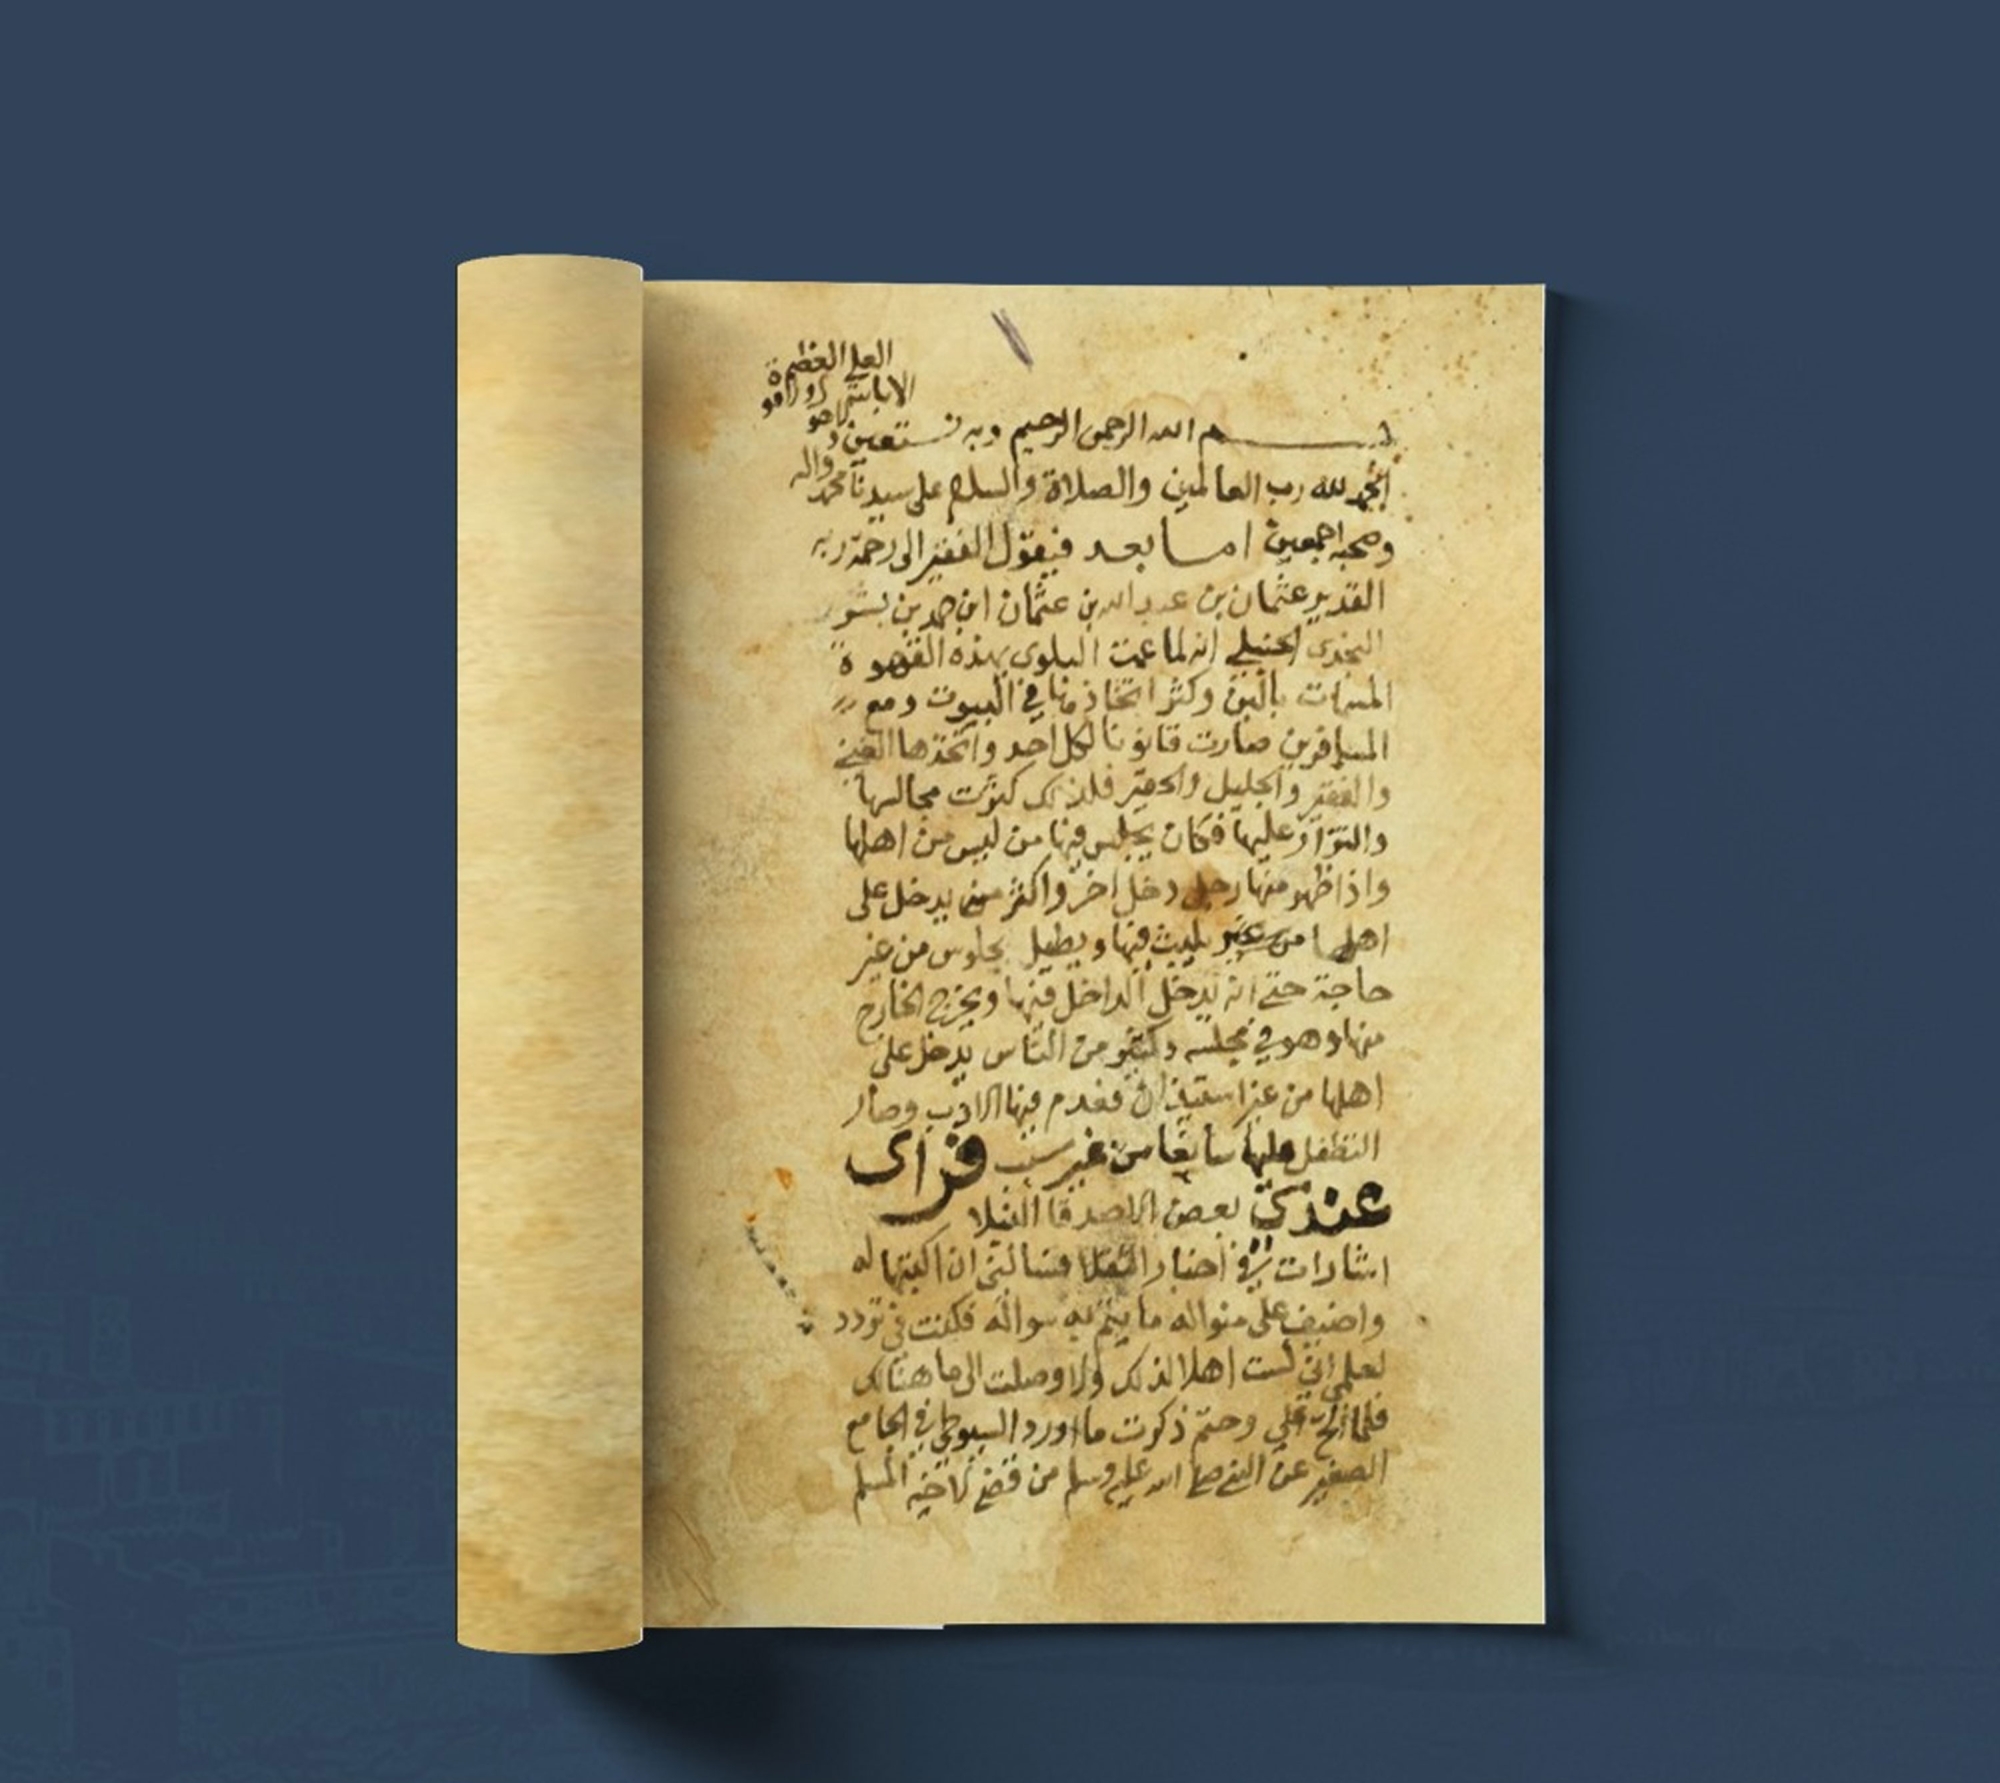 العلي العظيم
بسم الله الرحمن الرحيم وبه نستعين
الحمد لله رب العالمين والصلاة والسلام على سيدنا محمد واله
وصحبه اجمعين اما بعد فيقول الفقير الى رحمة ربه
القدير عثمان بن عبدالله بن عثمان ابن حمد بن بشر
النجدي الحنبلي انه لما عمت البلوى بهذه القهوة
المسمات بالبن وكثر اتخاذها في البيوت ومع
المسافرين صارت قانونا لكل احد واتخذها الغني
والفقير والجليل والحقير فلذلك كثرت مجالسها
عليها فكان يجلس فيها من ليس من اهلها
واذا ظهر منها رجل دخل اخر واكثر يدخل على
اهلها من غير فيها ويطيل من غير
حاجة حتى انه يدخل الداخل فيها ويخرج الخارج
منها وهو في مجلسه وكثير من الناس يدخل على
اهلها من غير استيذان فعدم فيها الادب وصار
التطفل عليها سايغا من غير سبب فرأى
عندي بعض الاصدقا النبلا
اشارات في اخبار الثقلا فسالني ان اكتبها له
واضيف على منواله ما يتم به سواله فكنت في تردد
لعلمي اني لست اهلا لذلك ولا وصلت الى ما هنالك
فلما الح علي وحتم ذكرت ما اورد السيوطي في الجامع
الصغير عن النبي صلى الله عليه وسلم من قضى لاخيه المسلم